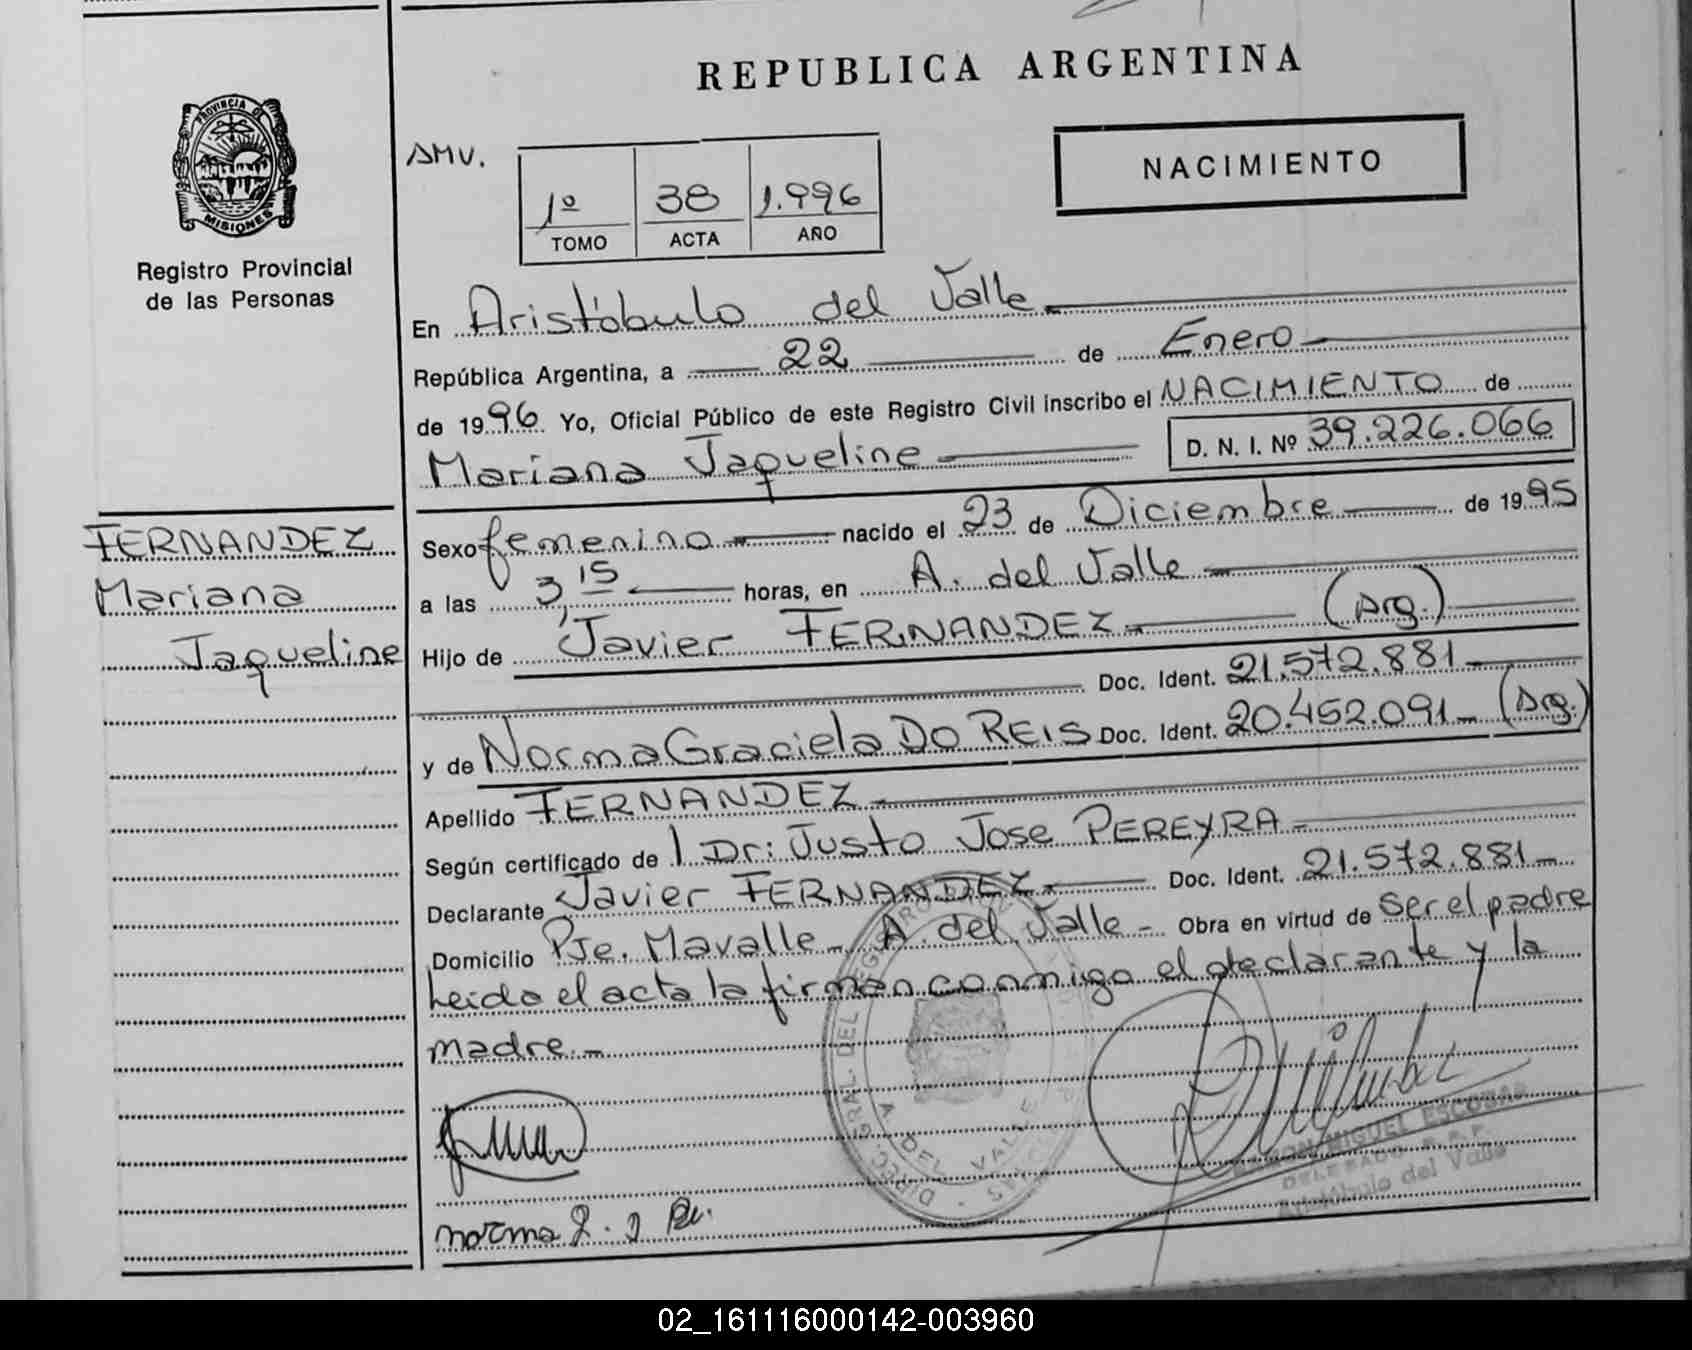 REPUBLICA ARGENTINA
PROVINCIA DE MISIONES
Registro Provincial
de las Personas
AMV.
1º 38 1.996
TOMO ACTA AÑO
NACIMIENTO
En Aristóbulo del Valle
República Argentina, a 22 de Enero
de 1996 Yo, Oficial Público de este Registro Civil inscribo el NACIMIENTO de
Mariana Jaqueline D. N. I. Nº 39.226.066
FERNANDEZ
Mariana
Jaqueline
Sexo femenino nacido el 23 de Diciembre de 1995
a las 3,15 horas, en A. del Valle
Hijo de Javier FERNANDEZ (Arg.)
Doc. Ident. 21.572.881
y de Norma Graciela DO REIS Doc. Ident. 20.452.091 (Arg.)
Apellido FERNANDEZ
Según certificado de Dr: Justo Jose PEREYRA
Declarante Javier FERNANDEZ Doc. Ident. 21.572.881
Domicilio Pje. Mavalle - A. del Valle - Obra en virtud de Ser el padre
Leida el acta la firman conmigo el declarante y la
madre.-
DIREC. GRAL. DEL REGISTRO
A. DEL VALLE
RAMON MIGUEL ESCOBAR
DELEGADO R.P.P.
Aristóbulo del Valle
norma
02_161116000142-003960